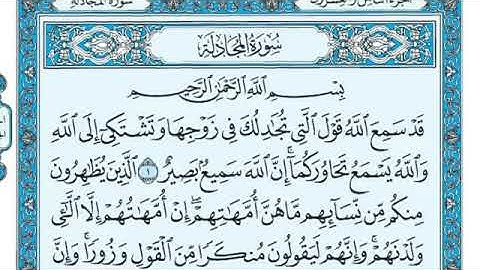 سُورَةُ المُجَادلَةِ
سُورَةُ المُجَادلَةِ
بِسْمِ اللَّهِ الرَّحْمَٰنِ الرَّحِيمِ
قَدْ سَمِعَ اللَّهُ قَوْلَ الَّتِي تُجَادِلُكَ فِي زَوْجِهَا وَتَشْتَكِي إِلَى اللَّهِ
وَاللَّهُ يَسْمَعُ تَحَاوُرَكُمَا إِنَّ اللَّهَ سَمِيعٌ بَصِيرٌ ١ الَّذِينَ يُظَٰهِرُونَ
مِنكُم مِّن نِّسَآئِهِم مَّا هُنَّ أُمَّهَٰتِهِمْ إِنْ أُمَّهَٰتُهُمْ إِلَّا الَّٰٓـِٔي
وَلَدْنَهُمْ وَإِنَّهُمْ لَيَقُولُونَ مُنكَرًا مِّنَ الْقَوْلِ وَزُورًا وَإِنَّ